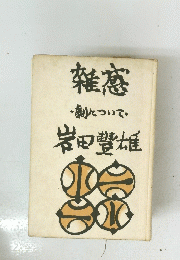 雑感
・劇について・
岩田豊雄